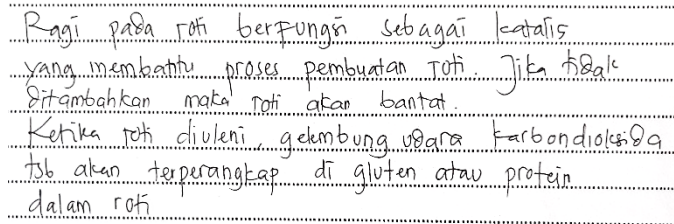 Ragi pada roti berfungsi sebagai katalis
yang membantu proses pembuatan roti. Jika tidak
ditambahkan maka roti akan bantat.
Ketika roti diuleni, gelembung udara karbondioksida
tsb akan terperangkap di gluten atau protein
dalam roti